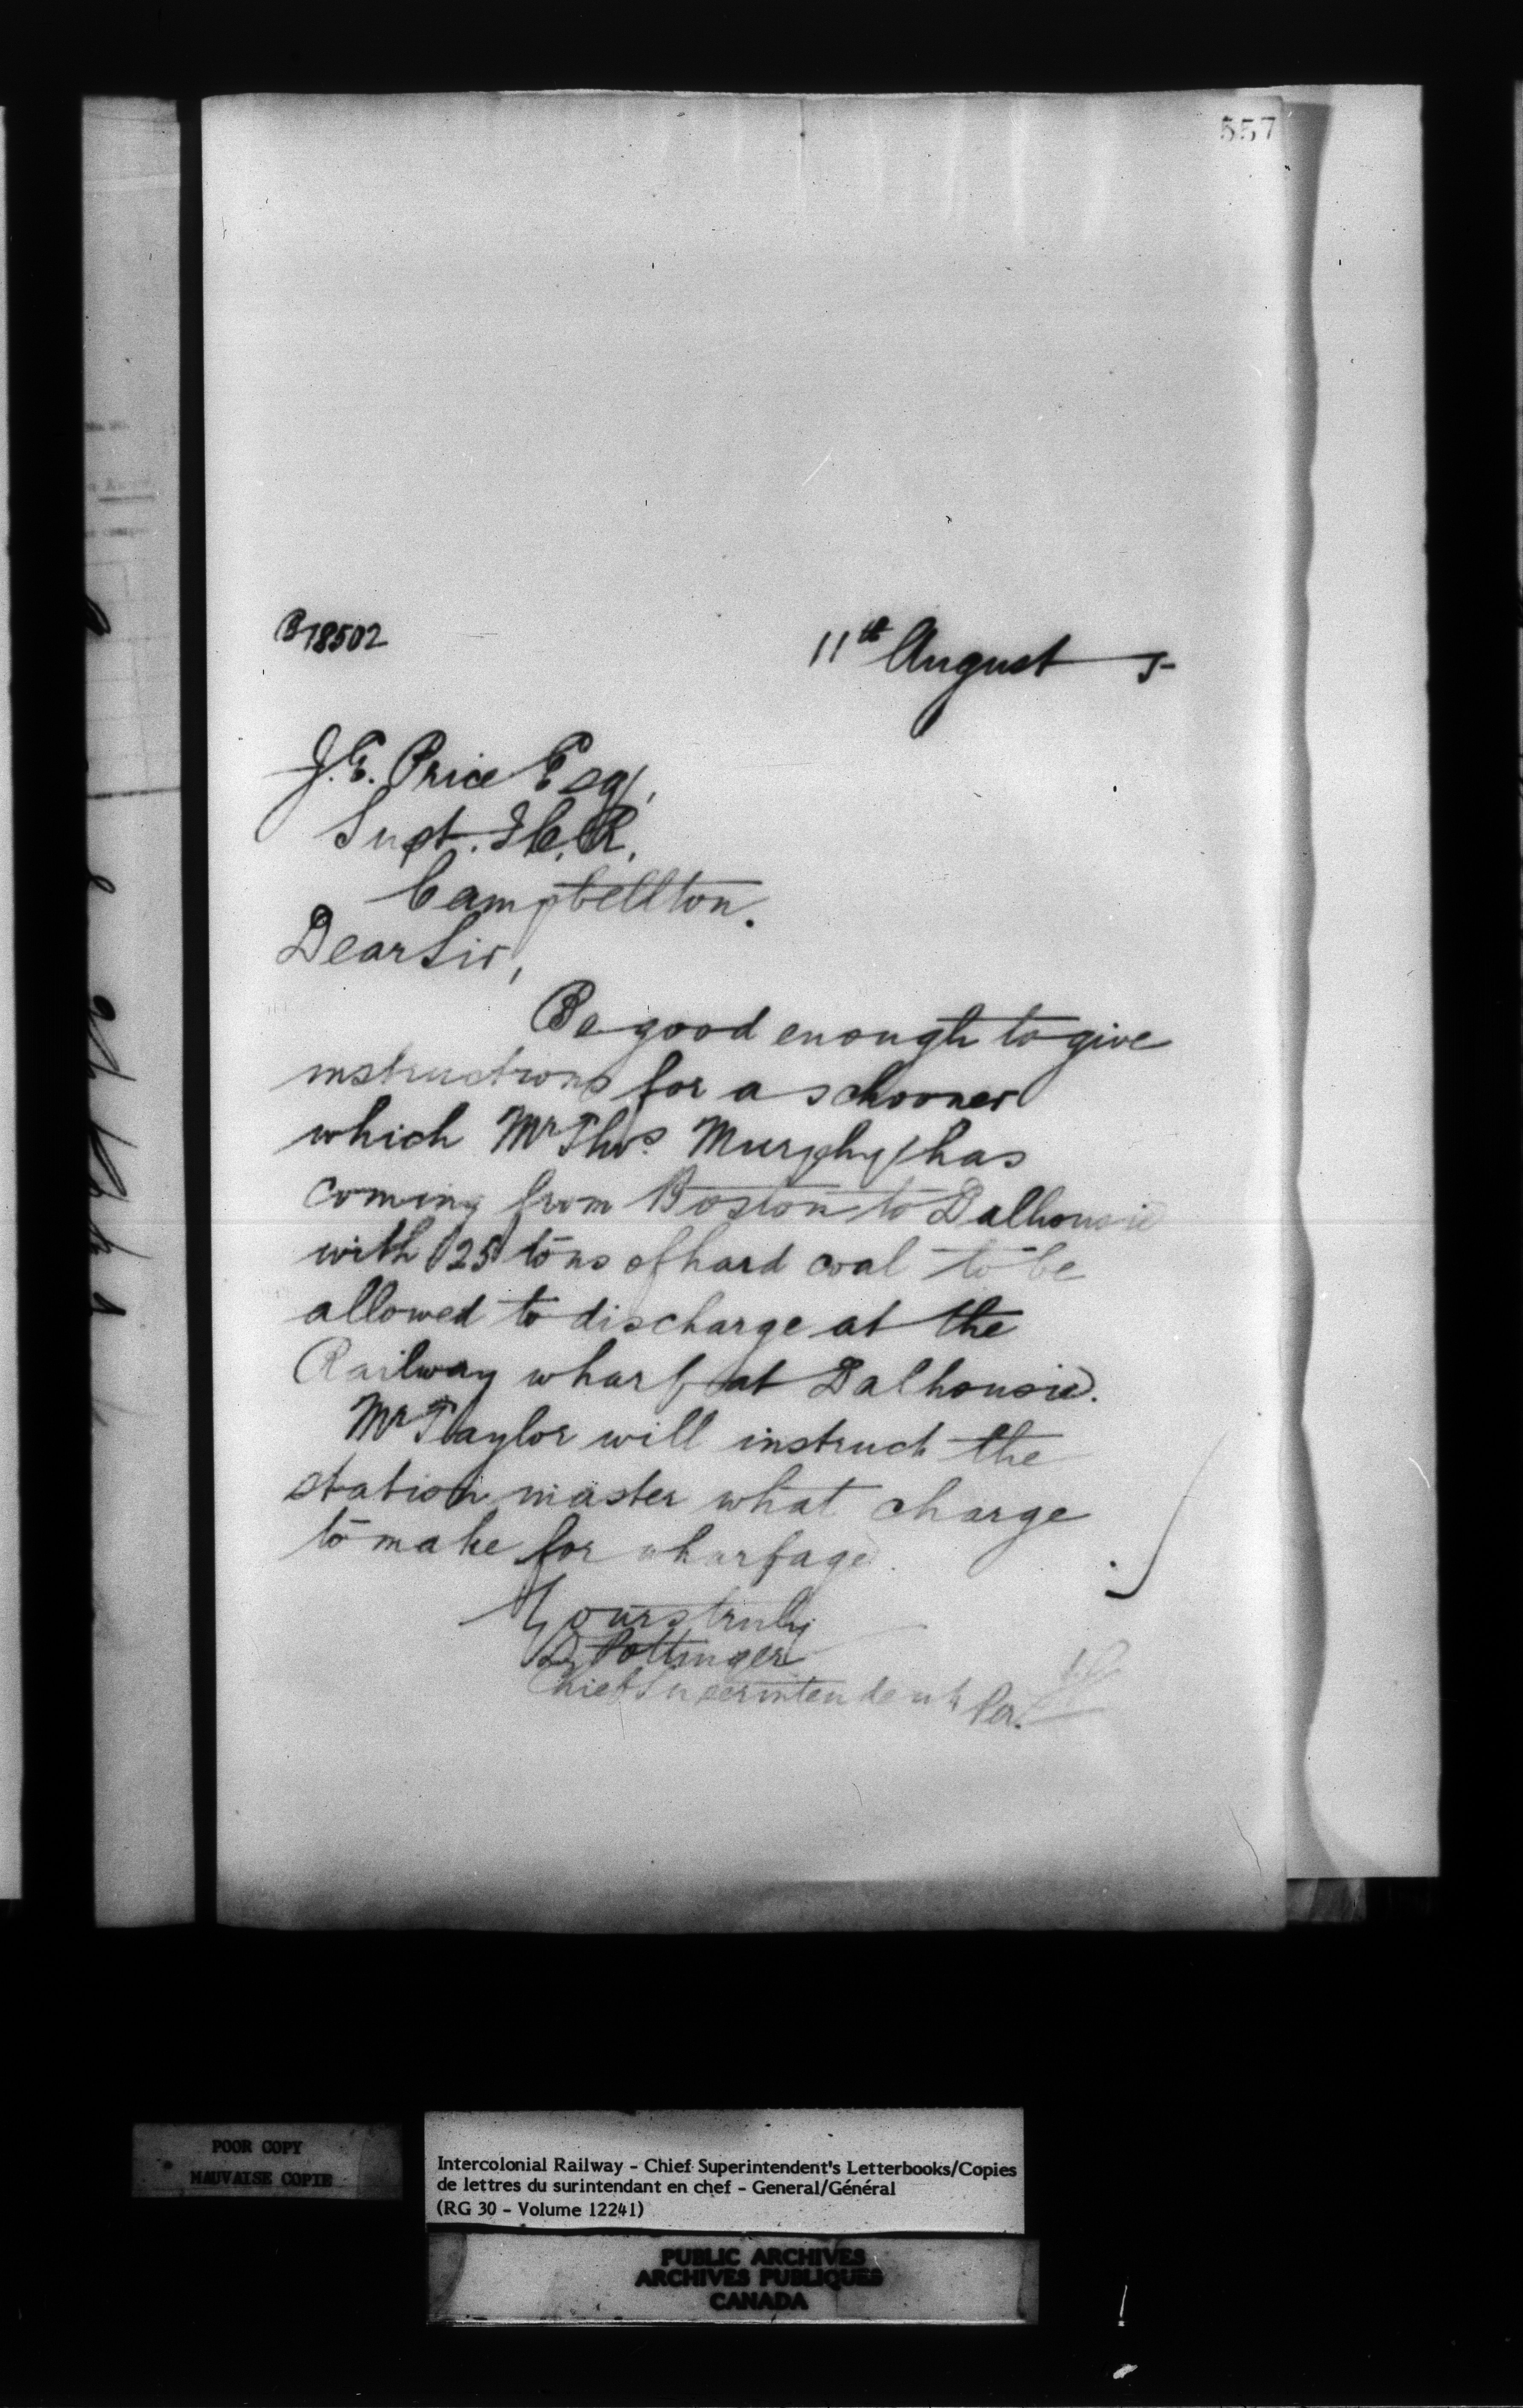 557
B18502
11th August 5
J. E. Price Esq,
Supt. I.C.R.
Campbellton.
Dear Sir,
Be good enough to give
instructions for a schooner
which Mr Thos. Murphy has
coming from Boston to Dalhousie
with 125 tons of hard coal to be
allowed to discharge at the
Railway wharf at Dalhousie.
Mr Taylor will instruct the
station master what charge
to make for wharfage.
Yours truly
D Pottinger
Chief Superintendent Per.
POOR COPY
MAUVAISE COPIE
Intercolonial Railway - Chief Superintendent's Letterbooks/Copies
de lettres du surintendant en chef - General/Général
(RG 30 - Volume 12241)
PUBLIC ARCHIVES
ARCHIVES PUBLIQUES
CANADA